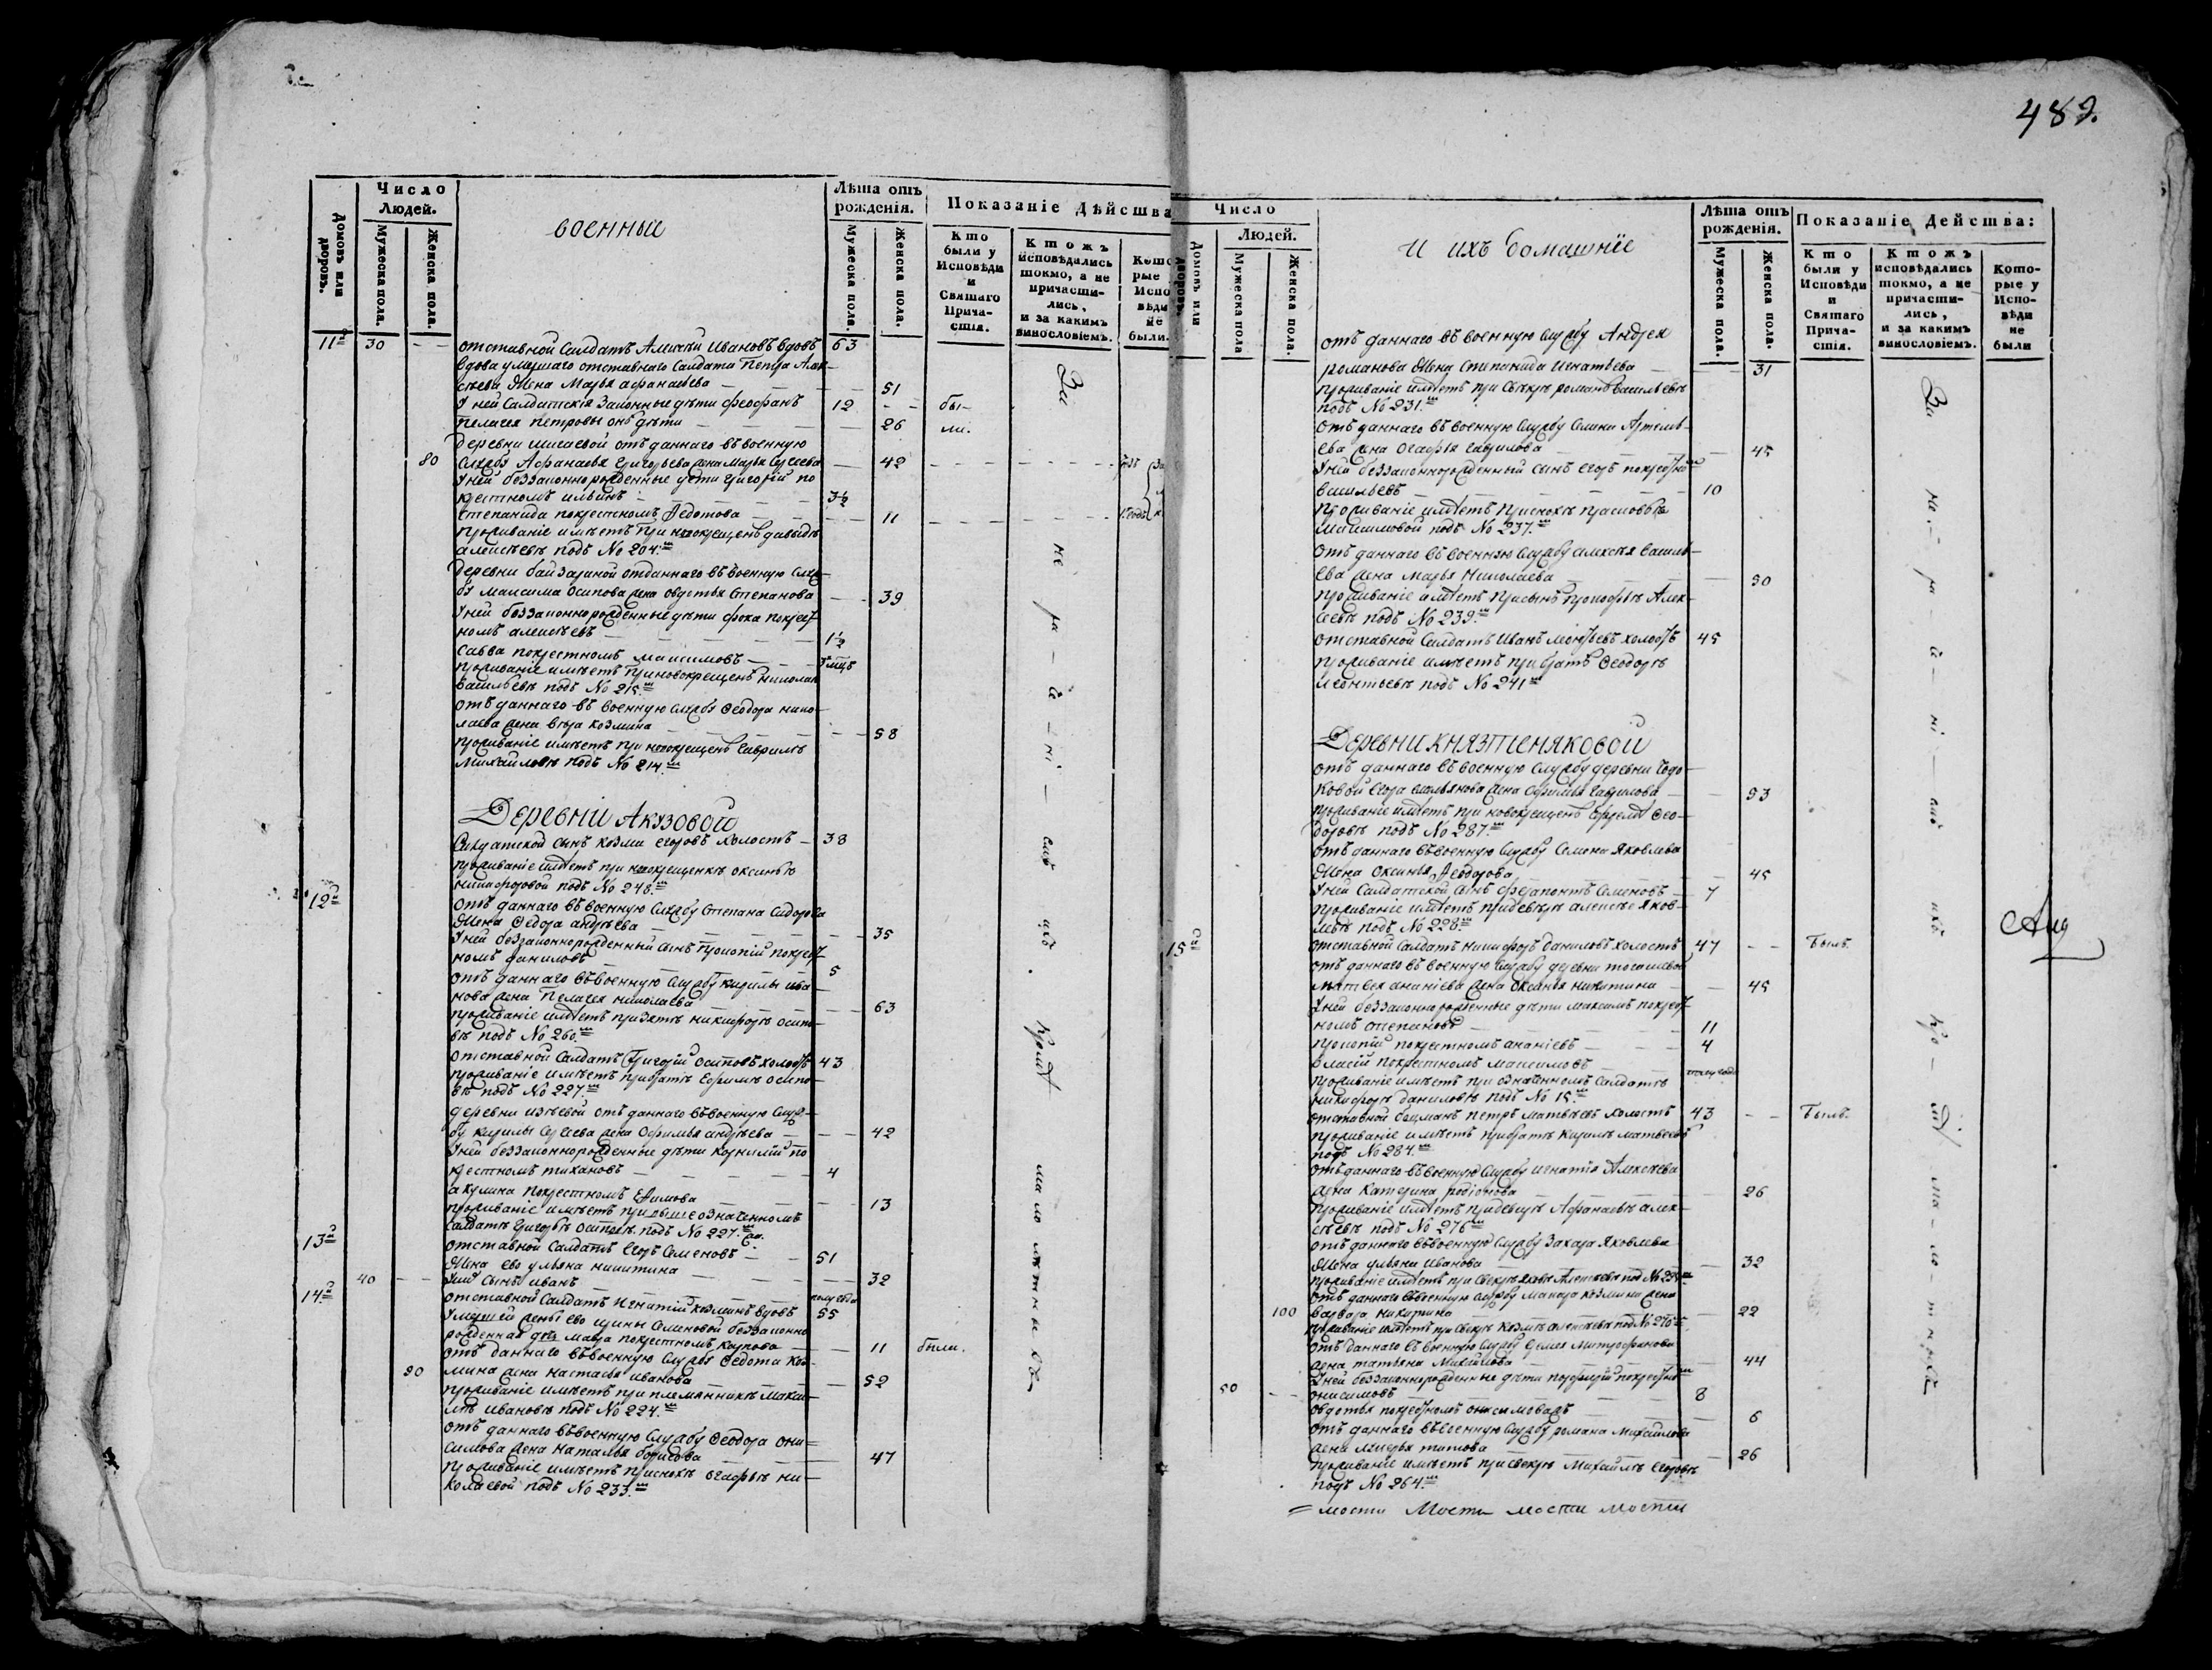 489.
Домовъ или дворовъ.
Число Людей.
Мужеска пола.
Женска пола.
военныи
Лѣта отъ рожденія.
Мужеска пола.
Женска пола.
Показаніе Дѣйства
Кто были у Исповѣди и Святаго Прича-стія.
Ктожъ исповѣдались токмо, а не причасти-лись, и за какимъ винословіемъ.
Кото рые Испо вѣди не были.
11й 30 отставной Салдатъ Алексѣй Ивановъ вдовъ 63
вдова умершаго отставнаго Салдата Петра Алек-
сѣева Жена Марья афанасьева 51
У ней Салдатскія Законные дѣти феофанъ 12 бы-
пелагея Петровы онѣ дѣти 26 ли.
деревни отъ даннаго въ военную
80 службу Афанасья Григорьева жена Марья Сергеева 42
У ней беззаконнорожденные дети григорій по
крестномъ ильинъ 3½
степанида покрестномъ Федотова 11
проживаніе имѣетъ при новокрещенѣ давыдѣ
алексѣевѣ подъ No 204.мъ
деревни отданнаго въ военную служ-
бу максима Осипова жена овдотья Степанова 39
У ней беззаконнорожденные дѣти фока покрест
номъ алексѣевъ 1½
савва покрестномъ максимовъ
проживаніе имѣетъ при новокрещенѣ николаѣ
васильевѣ подъ No 215.мъ
отъ даннаго въ военную службу Феодора нико-
лаева жена вѣра козмина 58
проживаніе имѣетъ при новокрещенѣ гаврилѣ
михайловѣ подъ No 214.мъ
Деревни Акузовой
Салдатской сынъ козма егоровъ холостъ 38
проживаніе имѣетъ при новокрещенкѣ оксиньѣ
никифоровой подъ No 248.мъ
12й отъ даннаго въ военную службу Степана Сидорова
Жена Федора андрѣева 35
У ней беззаконнорожденный сынъ прокопій покрест
номъ даниловъ 5
отъ даннаго въ военную службу кирилы ива
нова жена пелагея николаева 63
проживаніе имѣетъ при зятѣ никифорѣ осипо
вѣ подъ No 260.мъ
отставной Салдатъ Григорій осиповъ холостъ 43
проживаніе имѣетъ при братѣ Ефримѣ осипо-
вѣ подъ No 227.мъ
деревни отъ даннаго въ военную служ-
бу кирилы Сергеева жена Офимья андрѣева 42
У ней беззаконнорожденные дѣти корнилій по
крестномъ тихановъ 4
акулина покрестномъ Ефимова 13
проживаніе имѣетъ при выше означенномъ
салдатѣ григорьѣ осиповѣ подъ No 227.мъ
13й отставной Салдатъ Егоръ Семеновъ 51
Жена ево ульяна никитина 32
40 У нихъ сынъ иванъ полугода
14й отставной Салдатъ Игнатій козминъ вдовъ 55
Умершей жены ево ирины Семеновой беззаконно
рожденная дочь мавра покрестномъ карпова 11 были.
отъ даннаго въ военную службу Федота Коз-
90 мина жена настасья иванова 52
проживаніе имѣетъ при племянникѣ макси-
мѣ ивановѣ подъ No 224.мъ
отъ даннаго въ военную службу Феодора они-
симова жена наталья борисова 47
проживаніе имѣетъ при снохѣ огафьѣ ни-
колаевой подъ No 233.мъ
За не ра-че-ні-емъ ихъ. Кромѣ малолѣтныхъ
Домовъ или дворовъ.
Число Людей.
Мужеска пола
Женска пола.
и ихъ Домашніе
Лѣта отъ рожденія.
Мужеска пола.
Женска пола.
Показаніе Действа:
Кто были у Исповѣди и Святаго Прича-стія.
Ктожъ исповѣдались токмо, а не причасти-лись, и за какимъ винословіемъ.
Кото-рые у Испо-вѣди не были
отъ даннаго въ военную службу Андрея
романова Жена Степанида Игнатьева 31
проживаніе имѣетъ при свекрѣ романѣ васильевѣ
подъ No 231.мъ
отъ даннаго въ военную службу Семена Артемь-
ева жена Огафья гаврилова 45
У ней беззаконнорожденный сынъ егоръ покрестно
васильевъ 10
проживаніе имѣетъ при снохѣ прасковьѣ
максимовой подъ No 237.мъ
отъ даннаго въ военную службу алексѣя василь-
ева жена марья Николаева 90
проживаніе имѣетъ при сынѣ прокофьѣ Алек-
сѣевѣ подъ No 239.мъ
отставной Салдатъ Иванъ леонтьевъ холостъ 45
проживаніе имѣетъ при братѣ Феодорѣ
леонтьевѣ подъ No 241мъ
Деревни Князтеняковой
отъ даннаго въ военную службу деревни
ковой Егора жена Офимья гаврилова 93
проживаніе имѣетъ при новокрещенѣ Ефремѣ Фео-
доровѣ подъ No 287.мъ
отъ даннаго въ военную службу Семена Яковлева
Жена Оксинья Федорова 45
У ней Салдатской сынъ ферапонтъ Семеновъ 7
проживаніе имѣетъ при деверѣ алексѣе Яков-
левѣ подъ No 228.мъ
15й отставной Салдатъ никифоръ даниловъ холостъ 47 былъ.
отъ даннаго въ военную службу деревни
матвея ананіева жена Оксинья никитина 45
У ней беззаконнорожденные дѣти максимъ покрест
номъ степановъ 11
прокопій покрестномъ ананіевъ 4
власій покрестномъ максимовъ полугода
проживаніе имѣетъ при означенномъ салдатѣ
никифорѣ даниловѣ подъ No 15.мъ
отставной боцманъ петръ матвѣевъ холостъ 43 былъ.
проживаніе имѣетъ при братѣ Кирилѣ матвѣевѣ
подъ No 284.мъ
отъ даннаго въ военную службу игнатія Алексѣева
жена катерина родіонова 26
проживаніе имѣетъ при деверѣ Афанасьѣ алек-
сѣевѣ подъ No 276мъ
отъ даннаго въ военную службу Захара Яковлева
Жена ульяна Иванова 32
проживаніе имѣетъ при свекрѣ яковѣ Алексѣевѣ под No
отъ даннаго въ военную службу макара козмина жена
100 варвара никитина 22
проживаніе имѣетъ при свекрѣ козмѣ алексѣевѣ под No
отъ даннаго въ военную службу Митрофанова
жена татьяна Михайлова 44
У ней беззаконнорожденные дѣти порфирій покрестном
50 онисимовъ 8
овдотья покрестномъ онисимова 6
отъ даннаго въ военную службу романа михайлова
жена титова 26
проживаніе имѣетъ при свекрѣ Михайлѣ егоровѣ
подъ No 264.мъ
За не-ра-че-ні-емъ ихъ кро-мѣ ма-ло-
= мости Мости мости мости